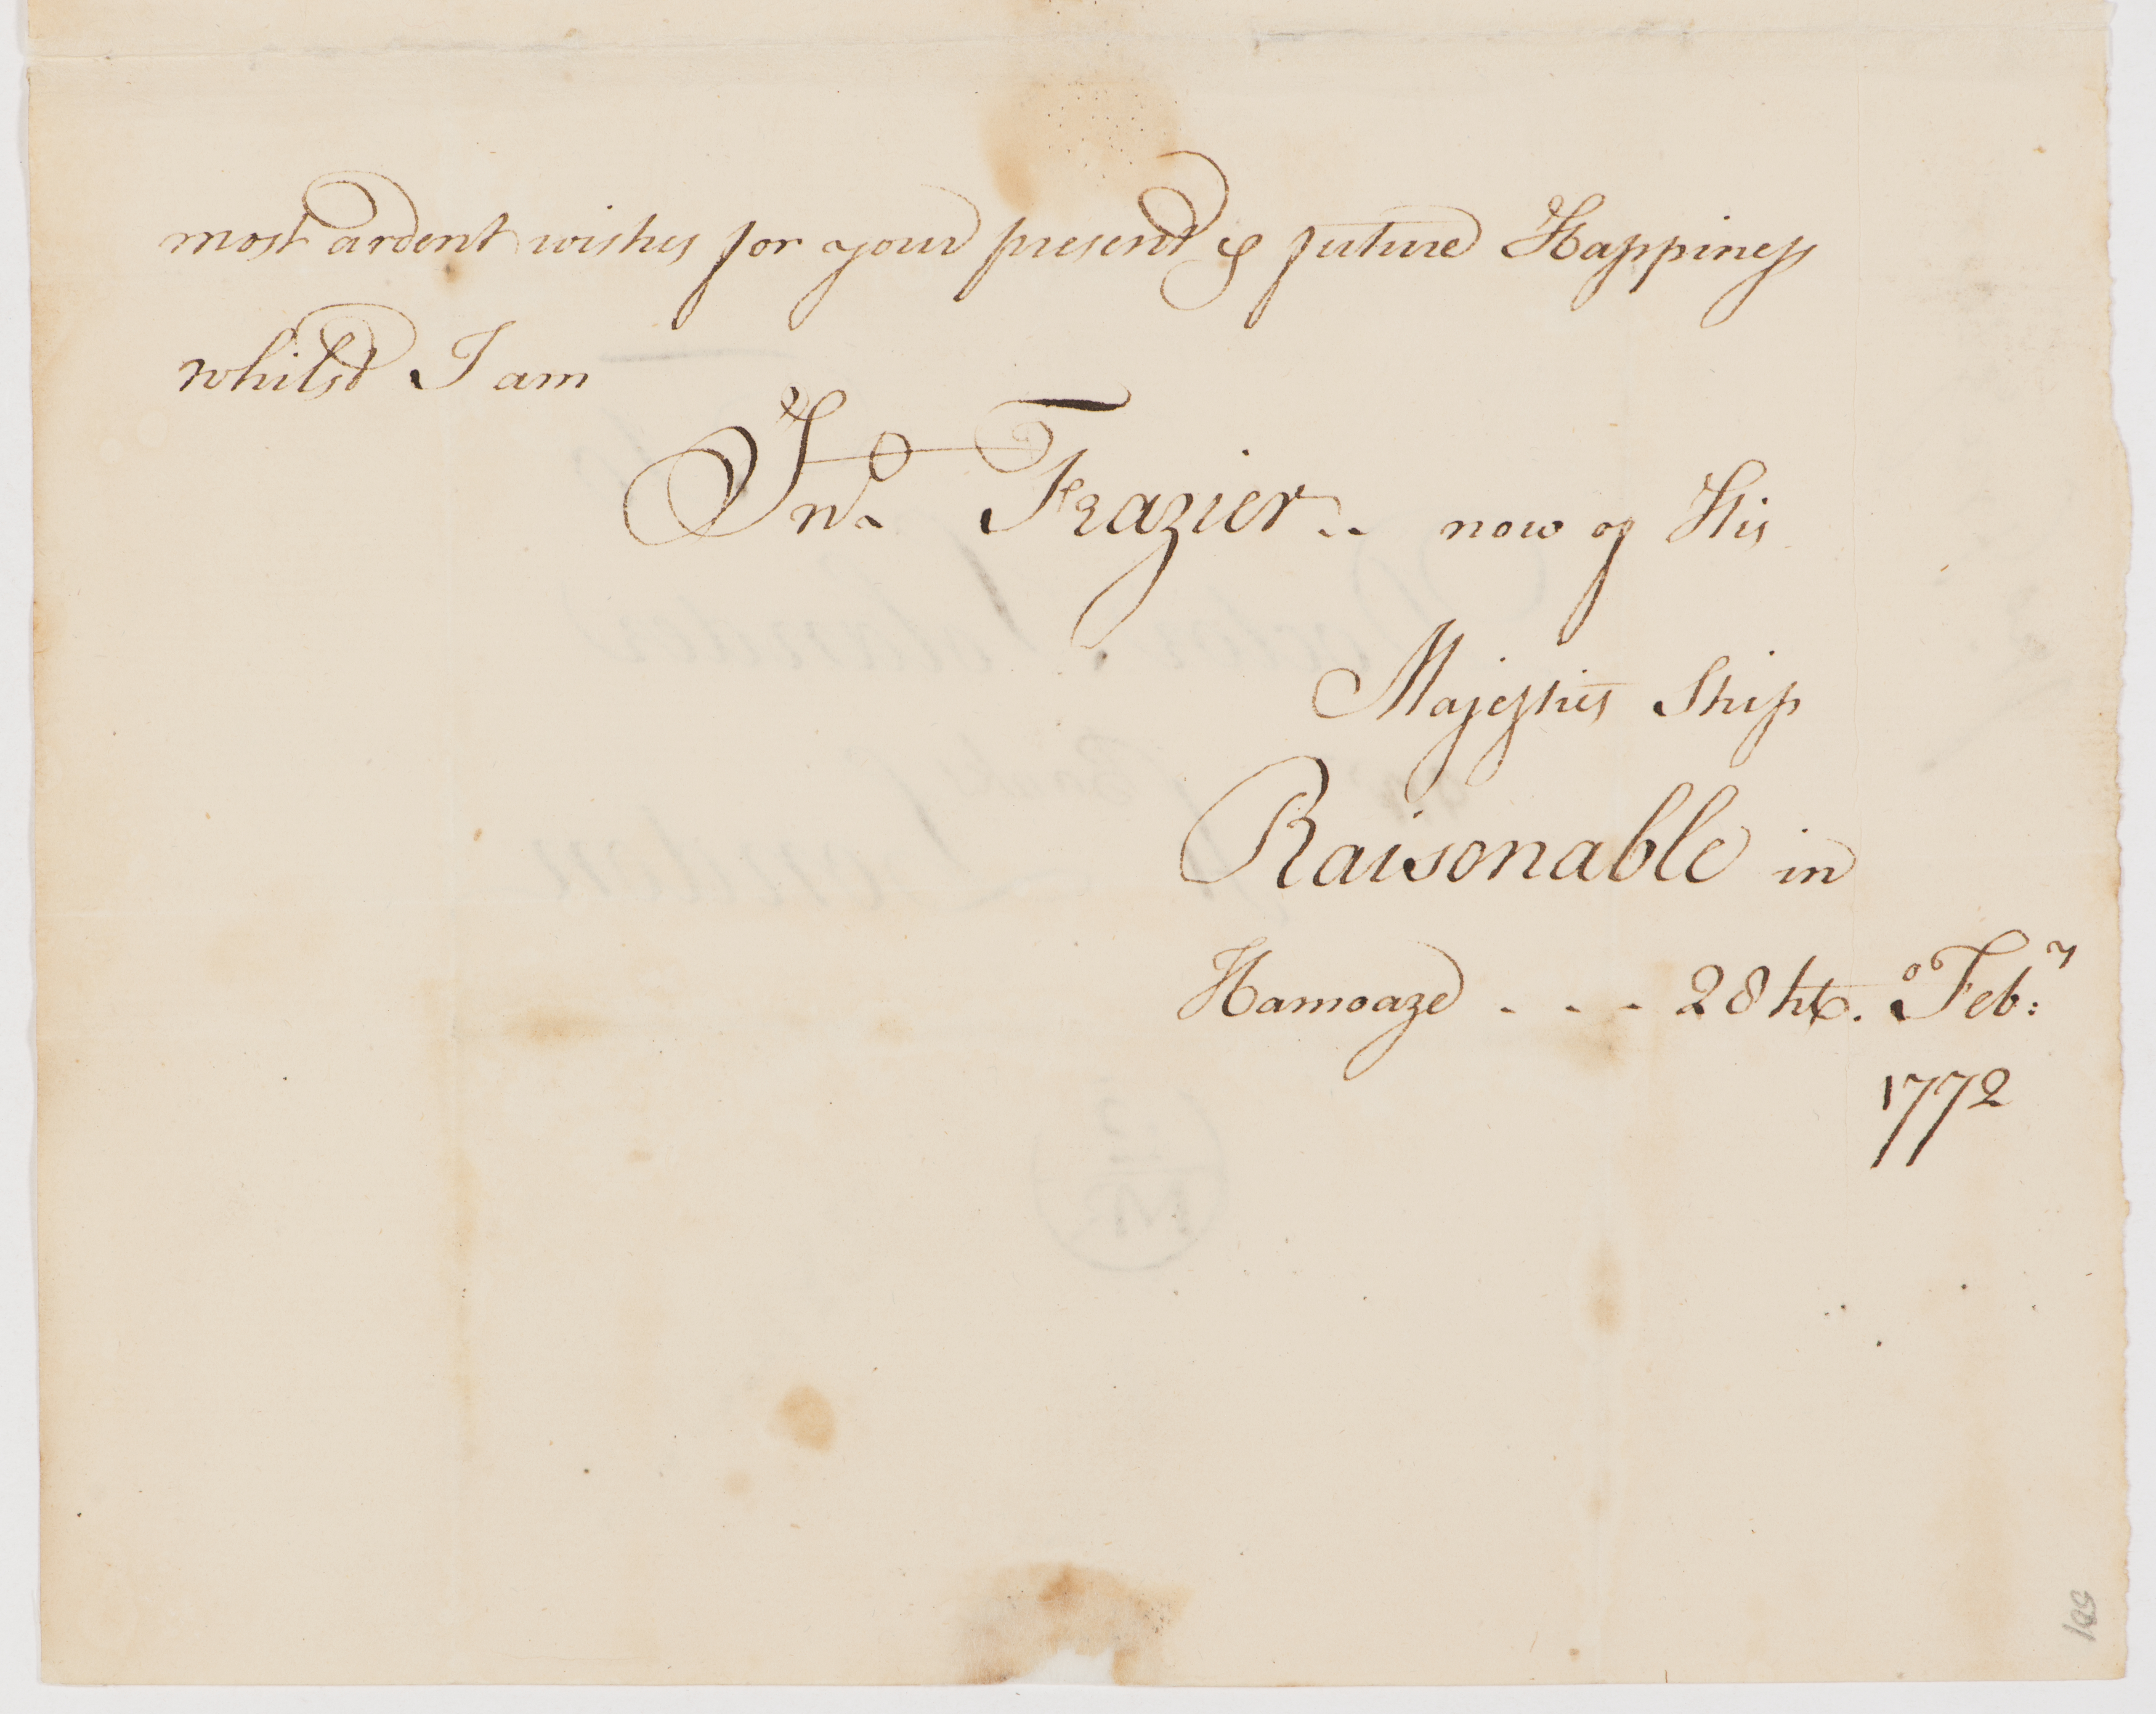 most ardent wishes for your present & future Happiness
whilst I am
Jno. Frazier.. now of His
Majesties Ship
Raisonable in
Hamoaze - - - 28ht. o Feb:y
1772